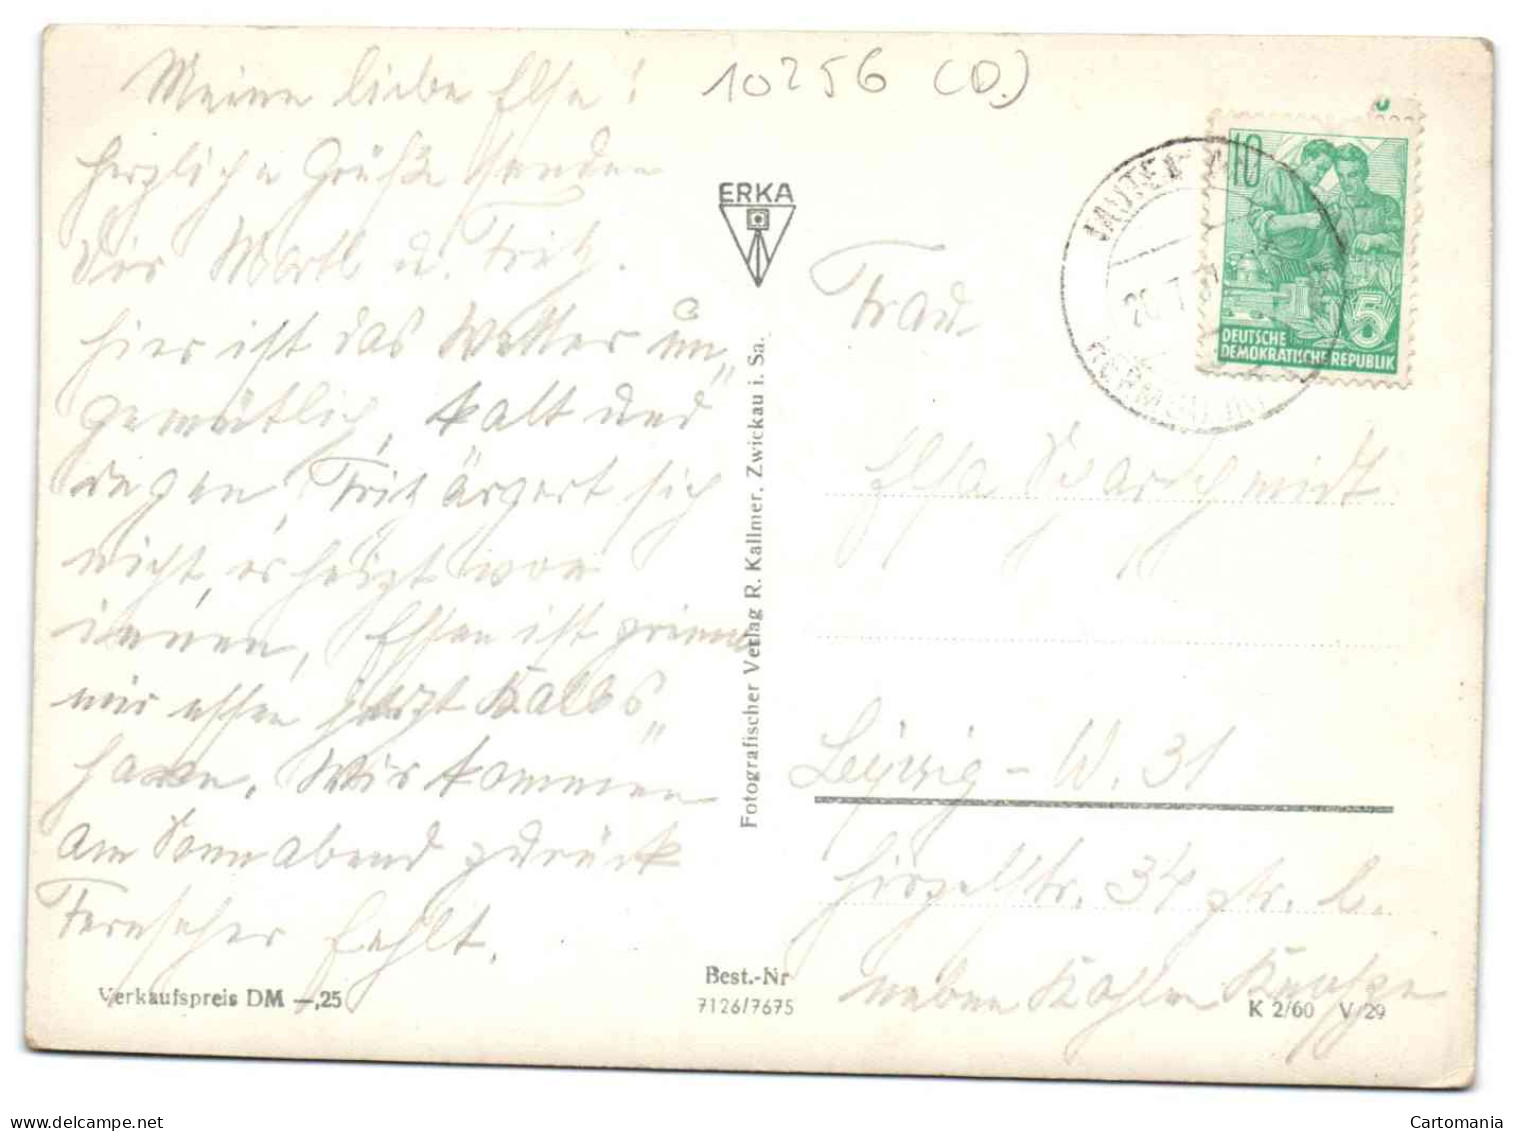 Meine liebe Elsa!
10256 (D.)
herzliche Grüße senden
dir Martl u. Fritz.
hier ist das Wetter un„
gemütlich, kalt und
regen, Fritz ärgert sich
nicht, er heizt von
innen, Essen ist prima
wir essen jetzt Kalbs„
Wir kommen
am Sonnabend zurück
Fernseher fehlt.
Verkaufspreis DM —,25
ERKA
Fotografischer Verlag R. Kallmer, Zwickau i. Sa.
Best.-Nr
7126/7675
10
5
DEUTSCHE
DEMOKRATISCHE REPUBLIK
Frau
Elsa
Leipzig - W. 31
34
neben Kohlen
K 2/60 V/29
Cartomania